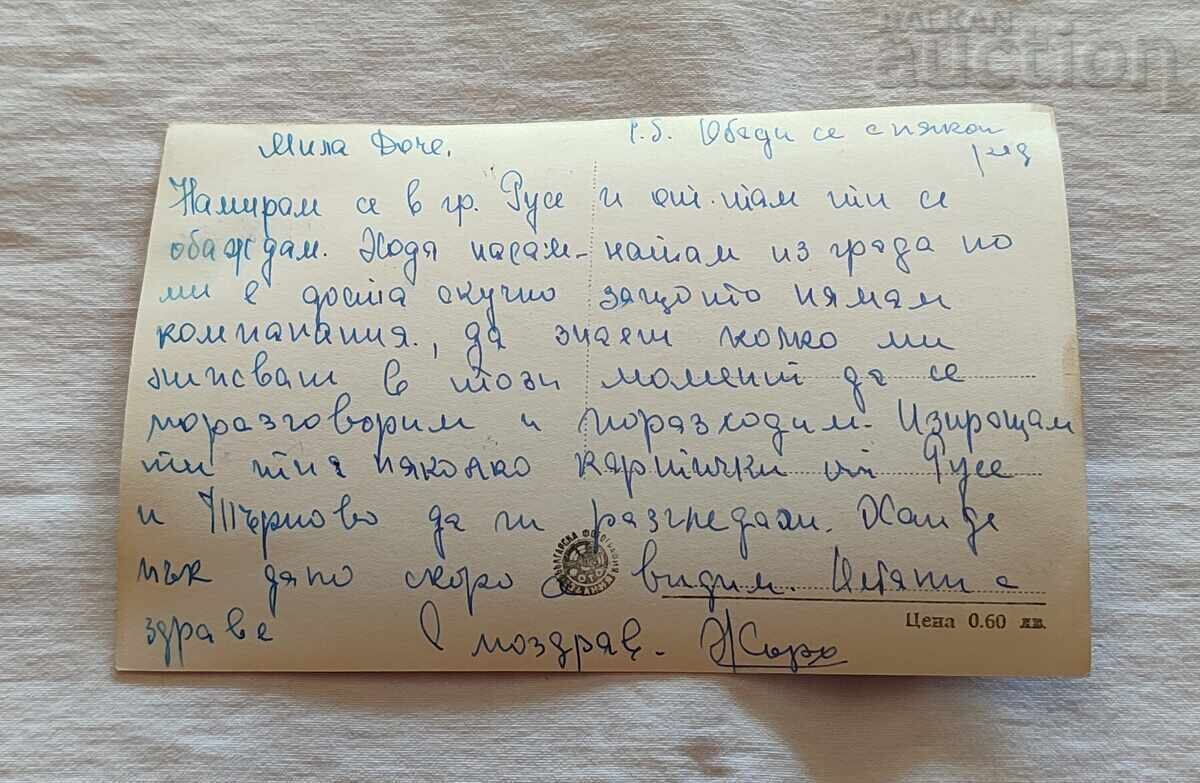 БАЛКАН
auction
Мила Доче,
P.S. Обади се с някой
ред
Намирам се в гр. Русе и от там ти се
обаждам. Ходя насам-натам из града но
ми е доста скучно защото нямам
компания, да знаеш колко ми
липсваш в този момент да се
поразговорим и поразходим. Изпращам
ти тия няколко картички от Русе
и Търново да ги разгледаш. Хайде
пък дано скоро се видим. Остани с
здраве
С поздрав.
Цена 0.60 лв.